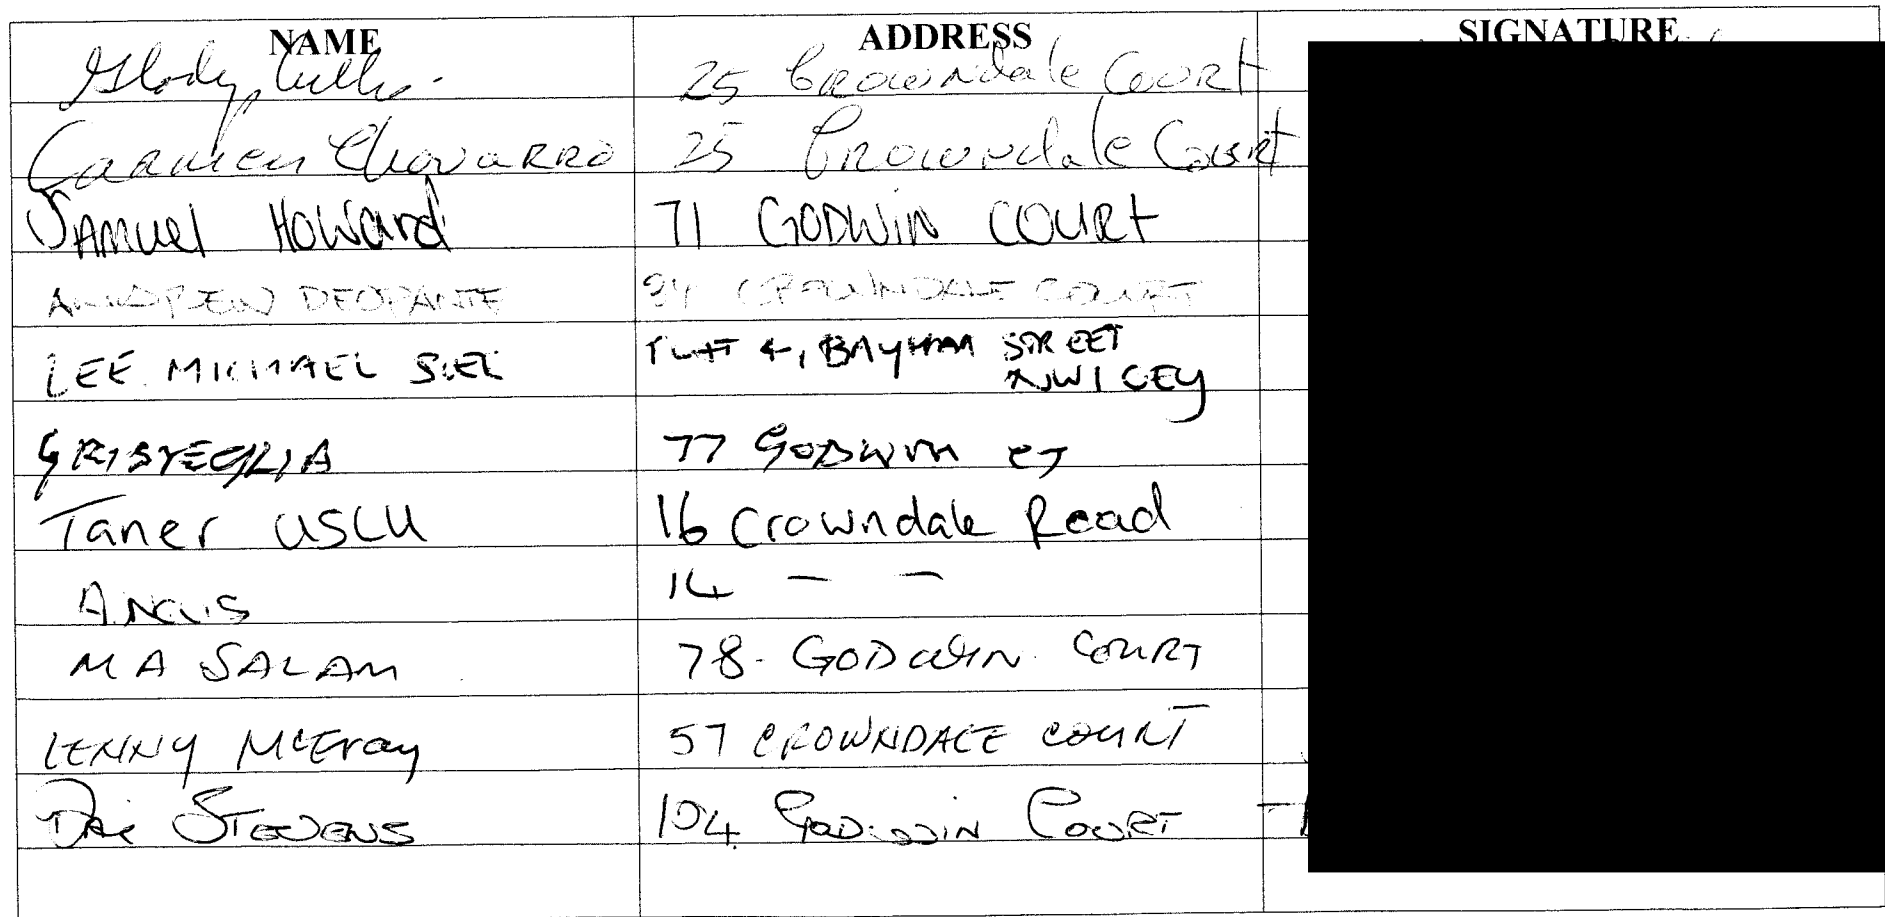 NAME ADDRESS SIGNATURE
25 Crowndale Court
Carmen Chavarro 25 Crowndale Court
Samuel Howard 71 GODWIN COURT
ANDREW DEOPANTE 94 CROWNDALE COURT
LEE MICHAEL 4, BAYHAM STREET
NW1 0EY
77 GODWIN CT
Taner USLU 16 Crowndale Road
ANGUS 14 — —
MA SALAM 78. GODWIN COURT
LENNY McEroy 57 CROWNDALE COURT
STEVENS 104 GODWIN COURT